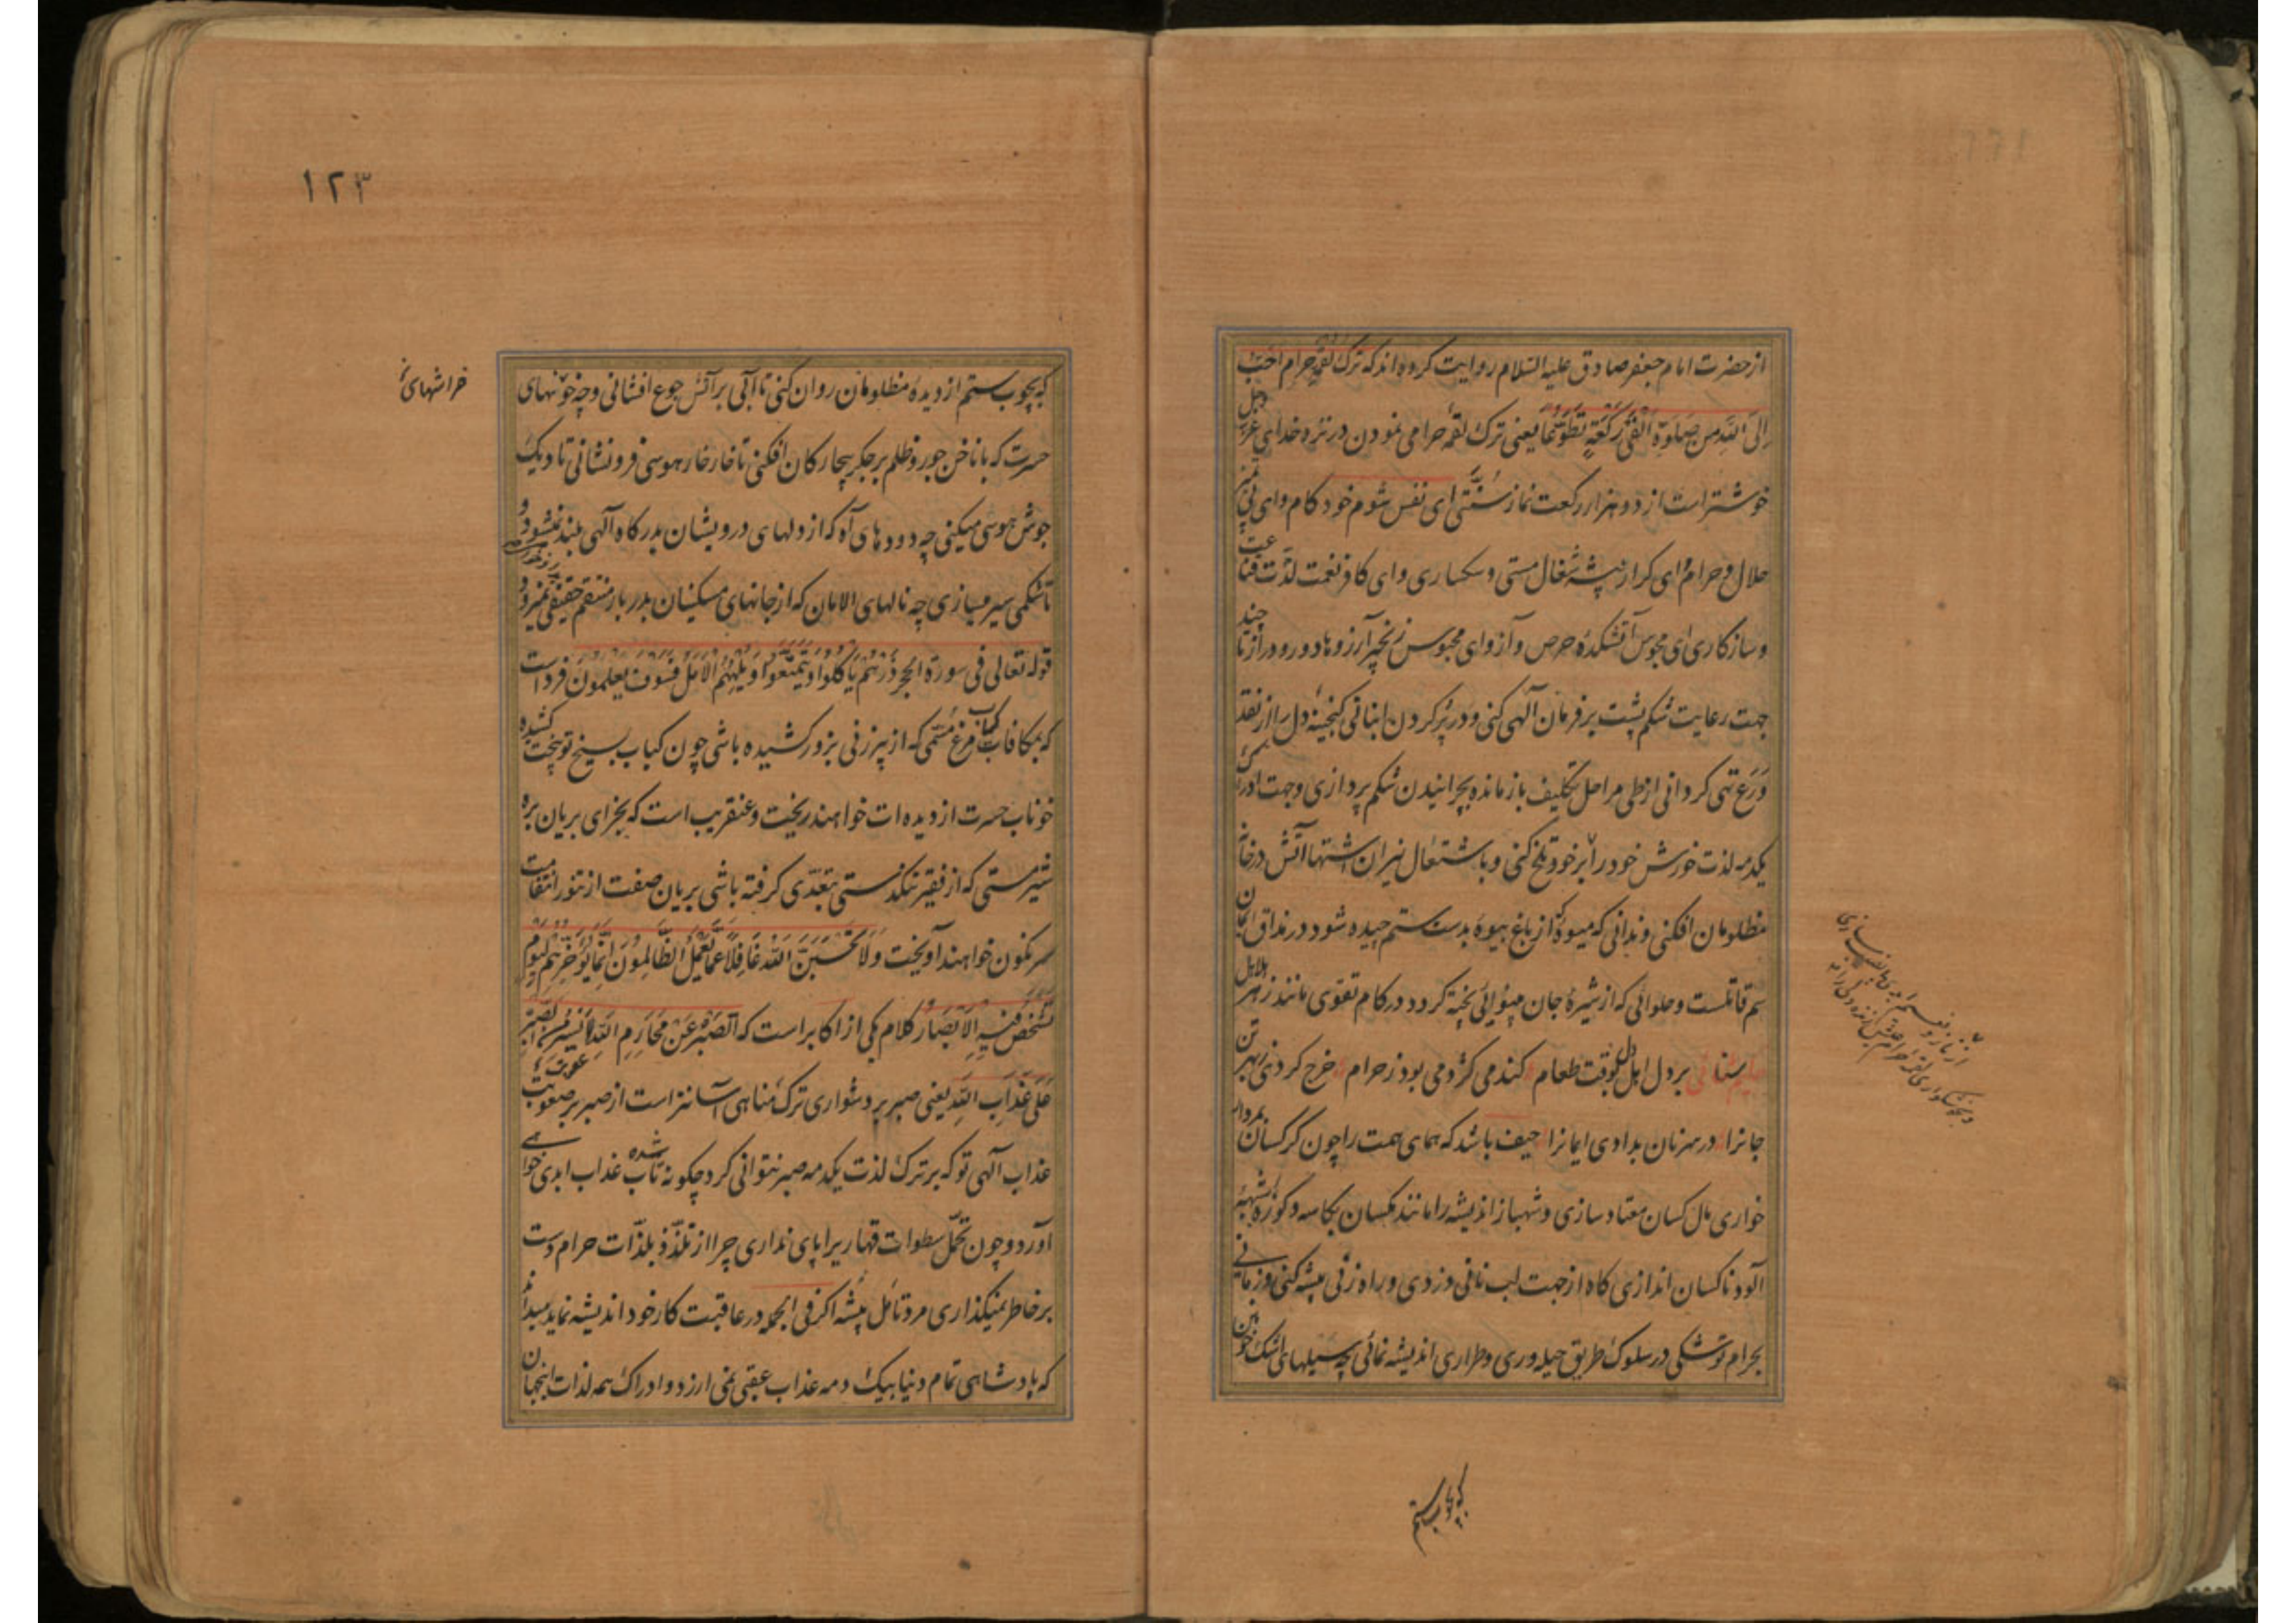 از حضرت امام جعفر صادق علیه السلام روایت کرده اند که ترک لقمة حرام احب
الی الله من صلوة الفی رکعة تطوعا یعنی ترک لقمه حرامی نمودن در نزد خدای عز وجل
خوشتر است از دو هزار رکعت نماز سنتی ای نفس شوم خود کام وای بی تمیز
حلال و حرام وای کراز بیشه شغال مستی و سکساری وای کافر نعمت لذت قناعت
و سازکاری ای مجوس آتشکده حرص و آز وای محبوس زنجیر آرزوها دور و دراز تا چند
جهت رعایت شکم پشت بر فرمان آلهی کنی و در پر کردن انبانی کنجینه دل را از نقد
ورع تهی کردانی از طی مراحل تکلیف باز مانده بچرانیدن شکم پردازی و جهت ادراک
یکدمه لذت خورش خود را بر خود تلخ کنی و باشتعال نیران اشتها آتش در خانه
مظلومان افکنی و ندانی که میوه کز باغ بیوه بدست ستم چیده شود در مذاق ایمان
سم قاتلست و حلوائی که از شیره جان بینوائی پخته کردد در کام تقوی مانند زهر هلاهل
سنائی بر دل اهل دل بوقت طعام کندمی کژدمی بود ز حرام خرج کردی بهر تن
جانرا در سر نان بدادی ایمانرا حیف باشد که همای همت را چون کرکسان بمردار
خواری مال کسان معتاد سازی و شهباز اندیشه را مانند مکسان بکاسه و کوزه شبهه
آلود ناکسان اندازی کاه از جهت لب نانی دزدی و راه زنی پیشه کنی و زمانی
بحرام توشکی در سلوک طریق حیله وری و طراری اندیشه نمائی چه سیلهای اشک خونین
که بچوب ستم
١٢٣
که بچوب ستم از دیده مظلومان روان کنی تا آبی بر آتش جوع افشانی و چه خونهای
خراشهای
حسرت که با ناخن جور و ظلم بر جکر بیچارکان افکنی تا خار خار هوسی فرو نشانی تا دیک
جوش هوسی میکنی چه دودهای آه که از دلهای درویشان بدرکاه آلهی بلند نمیشود و
تا شکمی سیر میسازی چه نالهای الامان که از جانهای مسکینان بدربار منتقم حقیقی نمیرود
قوله تعالی فی سورة الحجر ذرهم یاکلوا و یتمتعوا و یلههم الامل فسوف یعلمون فرداست
که بمکافات کباب مرغ مسمی که از پیر زنی بزور کشیده باشی چون کباب بسیخ توبیخت کشیده
خوناب حسرت از دیده ات خواهند ریخت و عنقریب است که بجزای بریان بره
شیر مستی که از فقیر تنکدستی بتعدی کرفته باشی بریان صفت از تنور انتقامت
سرنکون خواهند آویخت ولا تحسبن الله غافلا عما یعمل الظالمون انما یؤخرهم لیوم
تشخص فیه الابصار کلام یکی از اکابر است که الصبر عن محارم الله ایسر من الصبر
علی عذاب الله یعنی صبر بر دشواری ترک مناهی آسانتر است از صبر بر صعوبت عقوبت
عذاب آلهی تو که بر ترک لذت یکدمه صبر نتوانی کرد چکونه تاب شده عذاب ابدی خواهی
آورد و چون تحمل سطوات قهاریرا پای نداری چرا از تلذذ بلذات حرام دست
بر خاطر نمیکذاری مرد تامل پیشه اکر فی الجمله در عاقبت کار خود اندیشه نماید میداند
که پادشاهی تمام دنیا بیک دمه عذاب عقبی نمی ارزد و ادراک همه لذات اینجهان